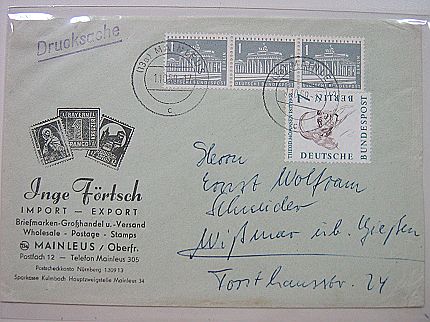 Drucksache
(13a) MAINLEUS
1 1 1
7
BERLIN
DEUTSCHE
BUNDESPOST
BAYERN
1
FRANCO
Inge Förtsch
IMPORT — EXPORT
Briefmarken-Großhandel u.-Versand
Wholesale - Postage - Stamps
MAINLEUS / Oberfr.
Postfach 12 — Telefon Mainleus 305
Postscheckkonto Nürnberg 130913
Sparkasse Kulmbach Hauptzweigstelle Mainleus 34
Herrn
Ernst Wolfram
Schneider
Wißmar üb. Gießen
Forsthausstr. 24